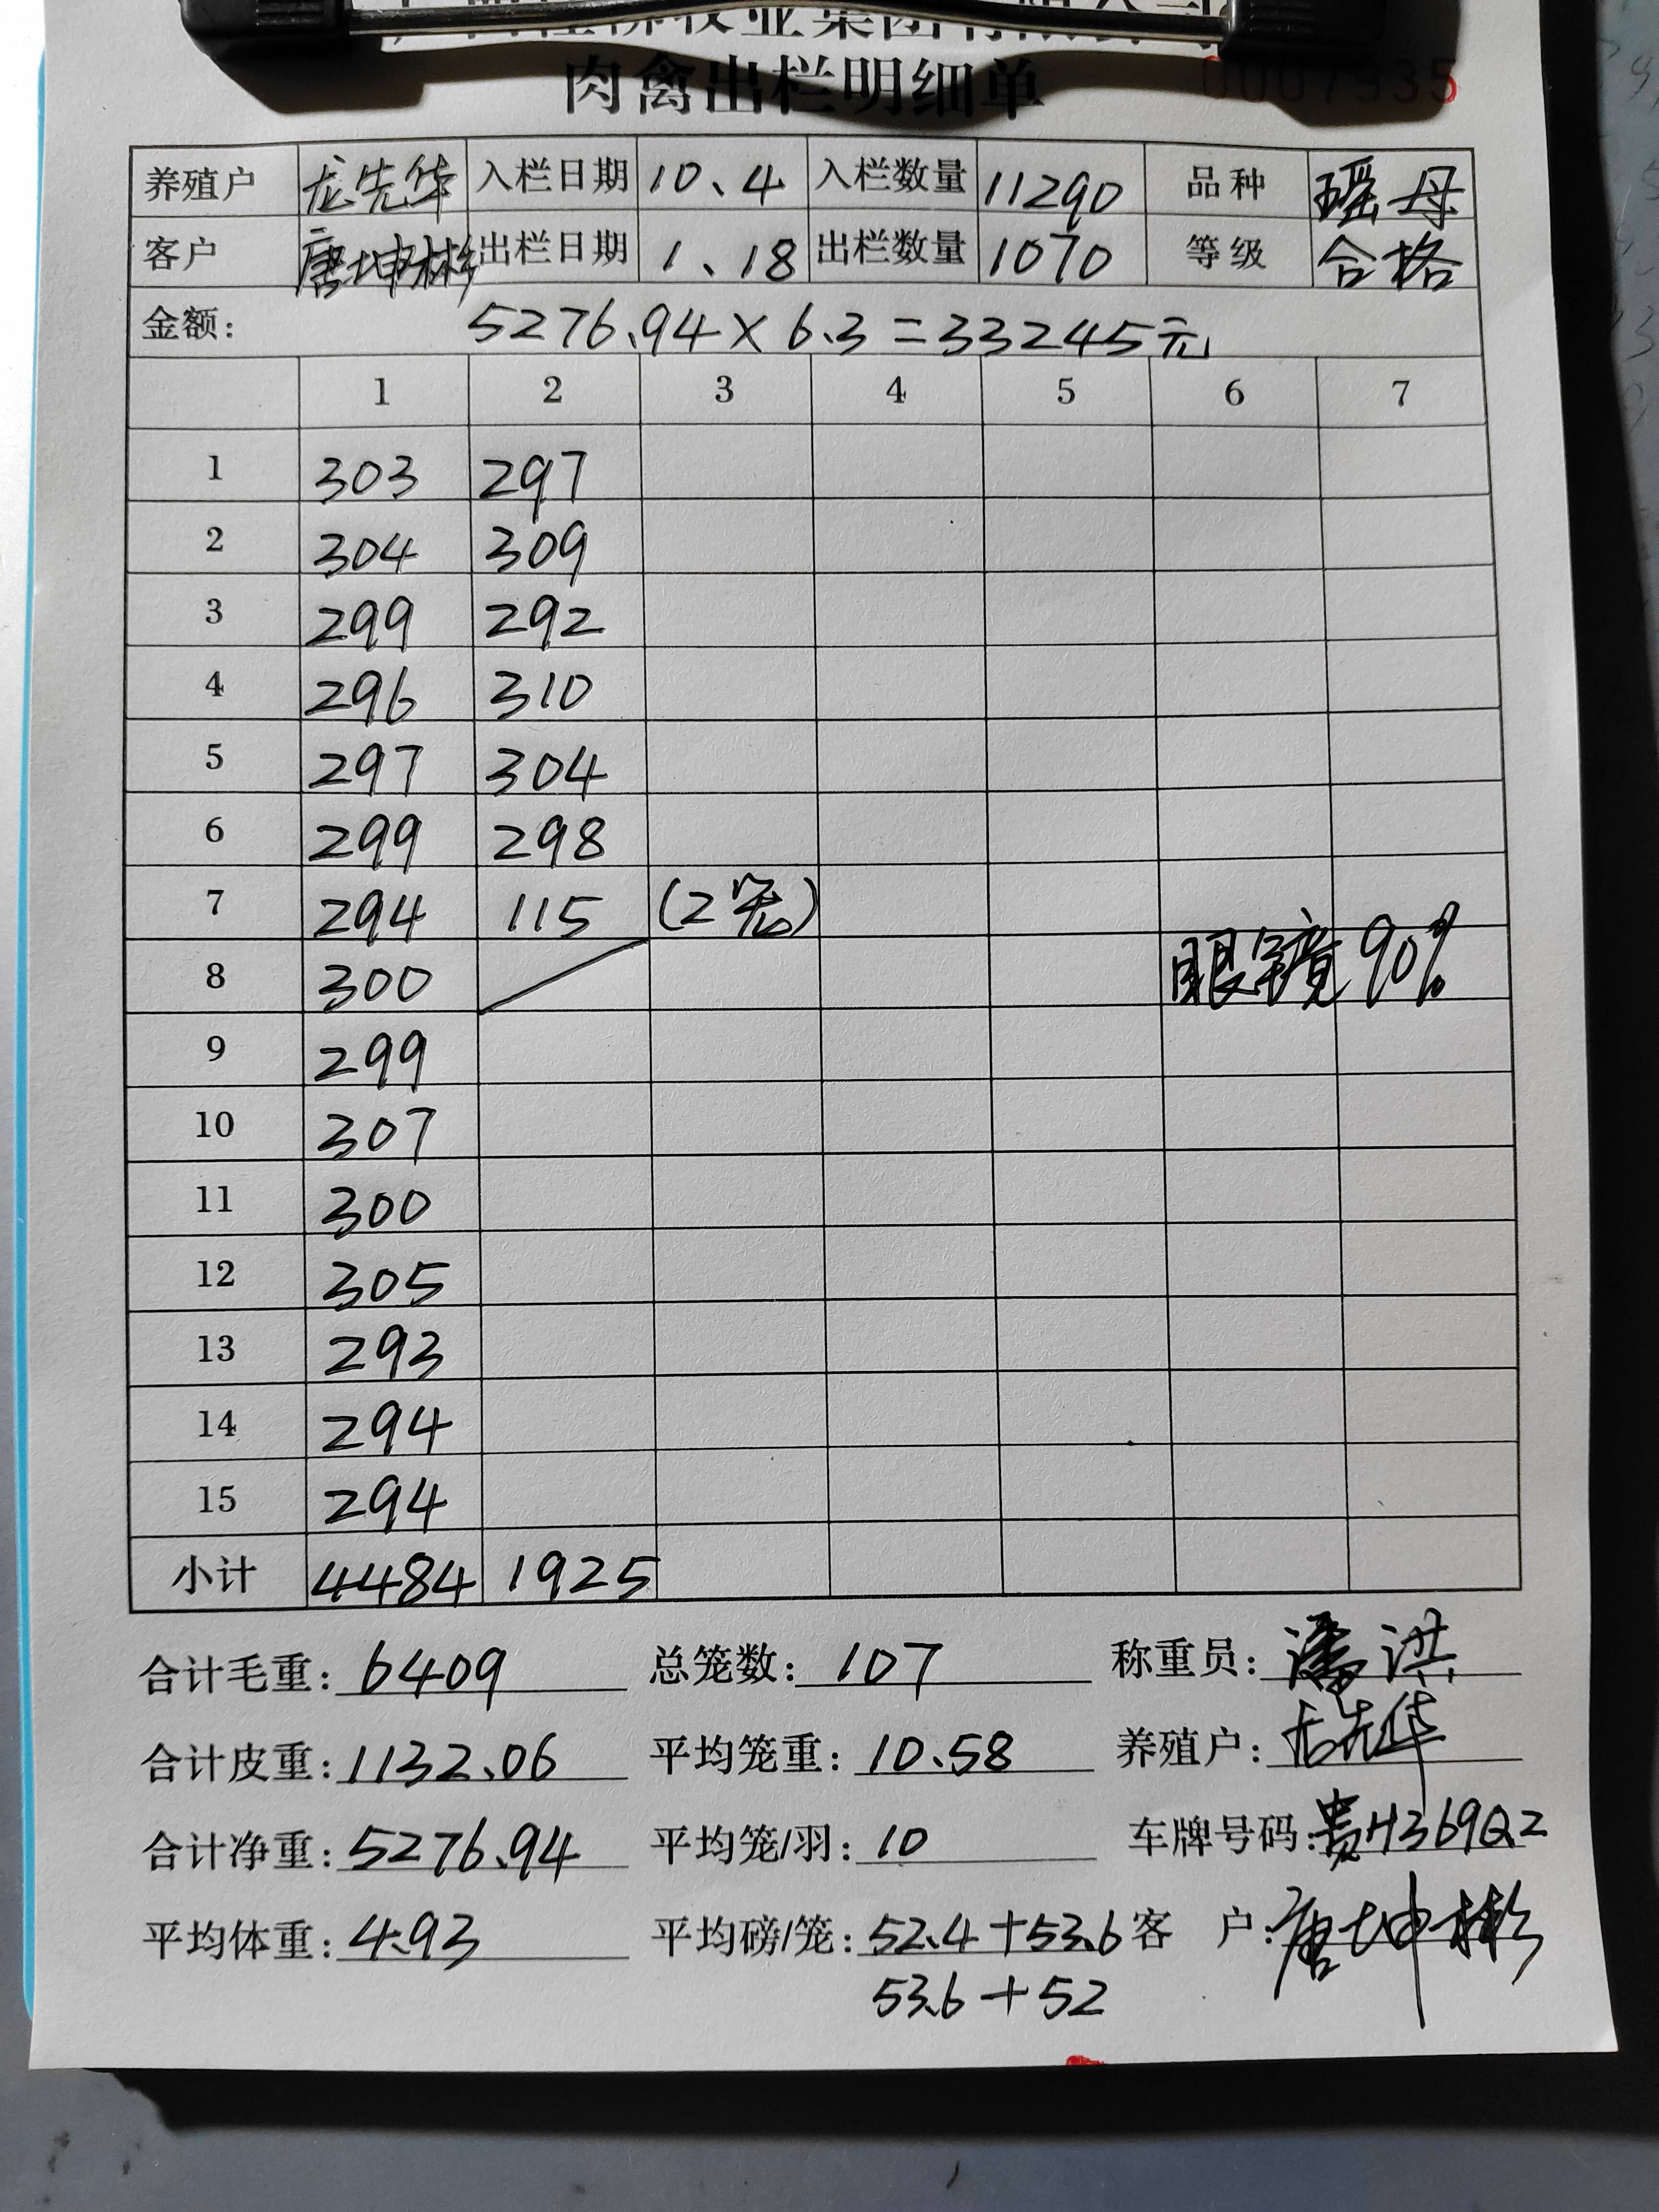 肉禽出栏明细单
0007935
养殖户 龙先华 入栏日期 10.4 入栏数量 11290 品种 瑶母
客户 唐坤彬 出栏日期 1.18 出栏数量 1070 等级 合格
金额: 5276.94×6.3=33245元
1 2 3 4 5 6 7
1 303 297
2 304 309
3 299 292
4 296 310
5 297 304
6 299 298
7 294 115 (2笼)
8 300 眼镜90%
9 299
10 307
11 300
12 305
13 293
14 294
15 294
小计 4484 1925
合计毛重: 6409 总笼数: 107 称重员: 潘洪
合计皮重: 1132.06 平均笼重: 10.58 养殖户: 龙先华
合计净重: 5276.94 平均笼/羽: 10 车牌号码: 贵H369Q2
平均体重: 4.93 平均磅/笼: 52.4+53.6 客户: 唐坤彬
53.6+52